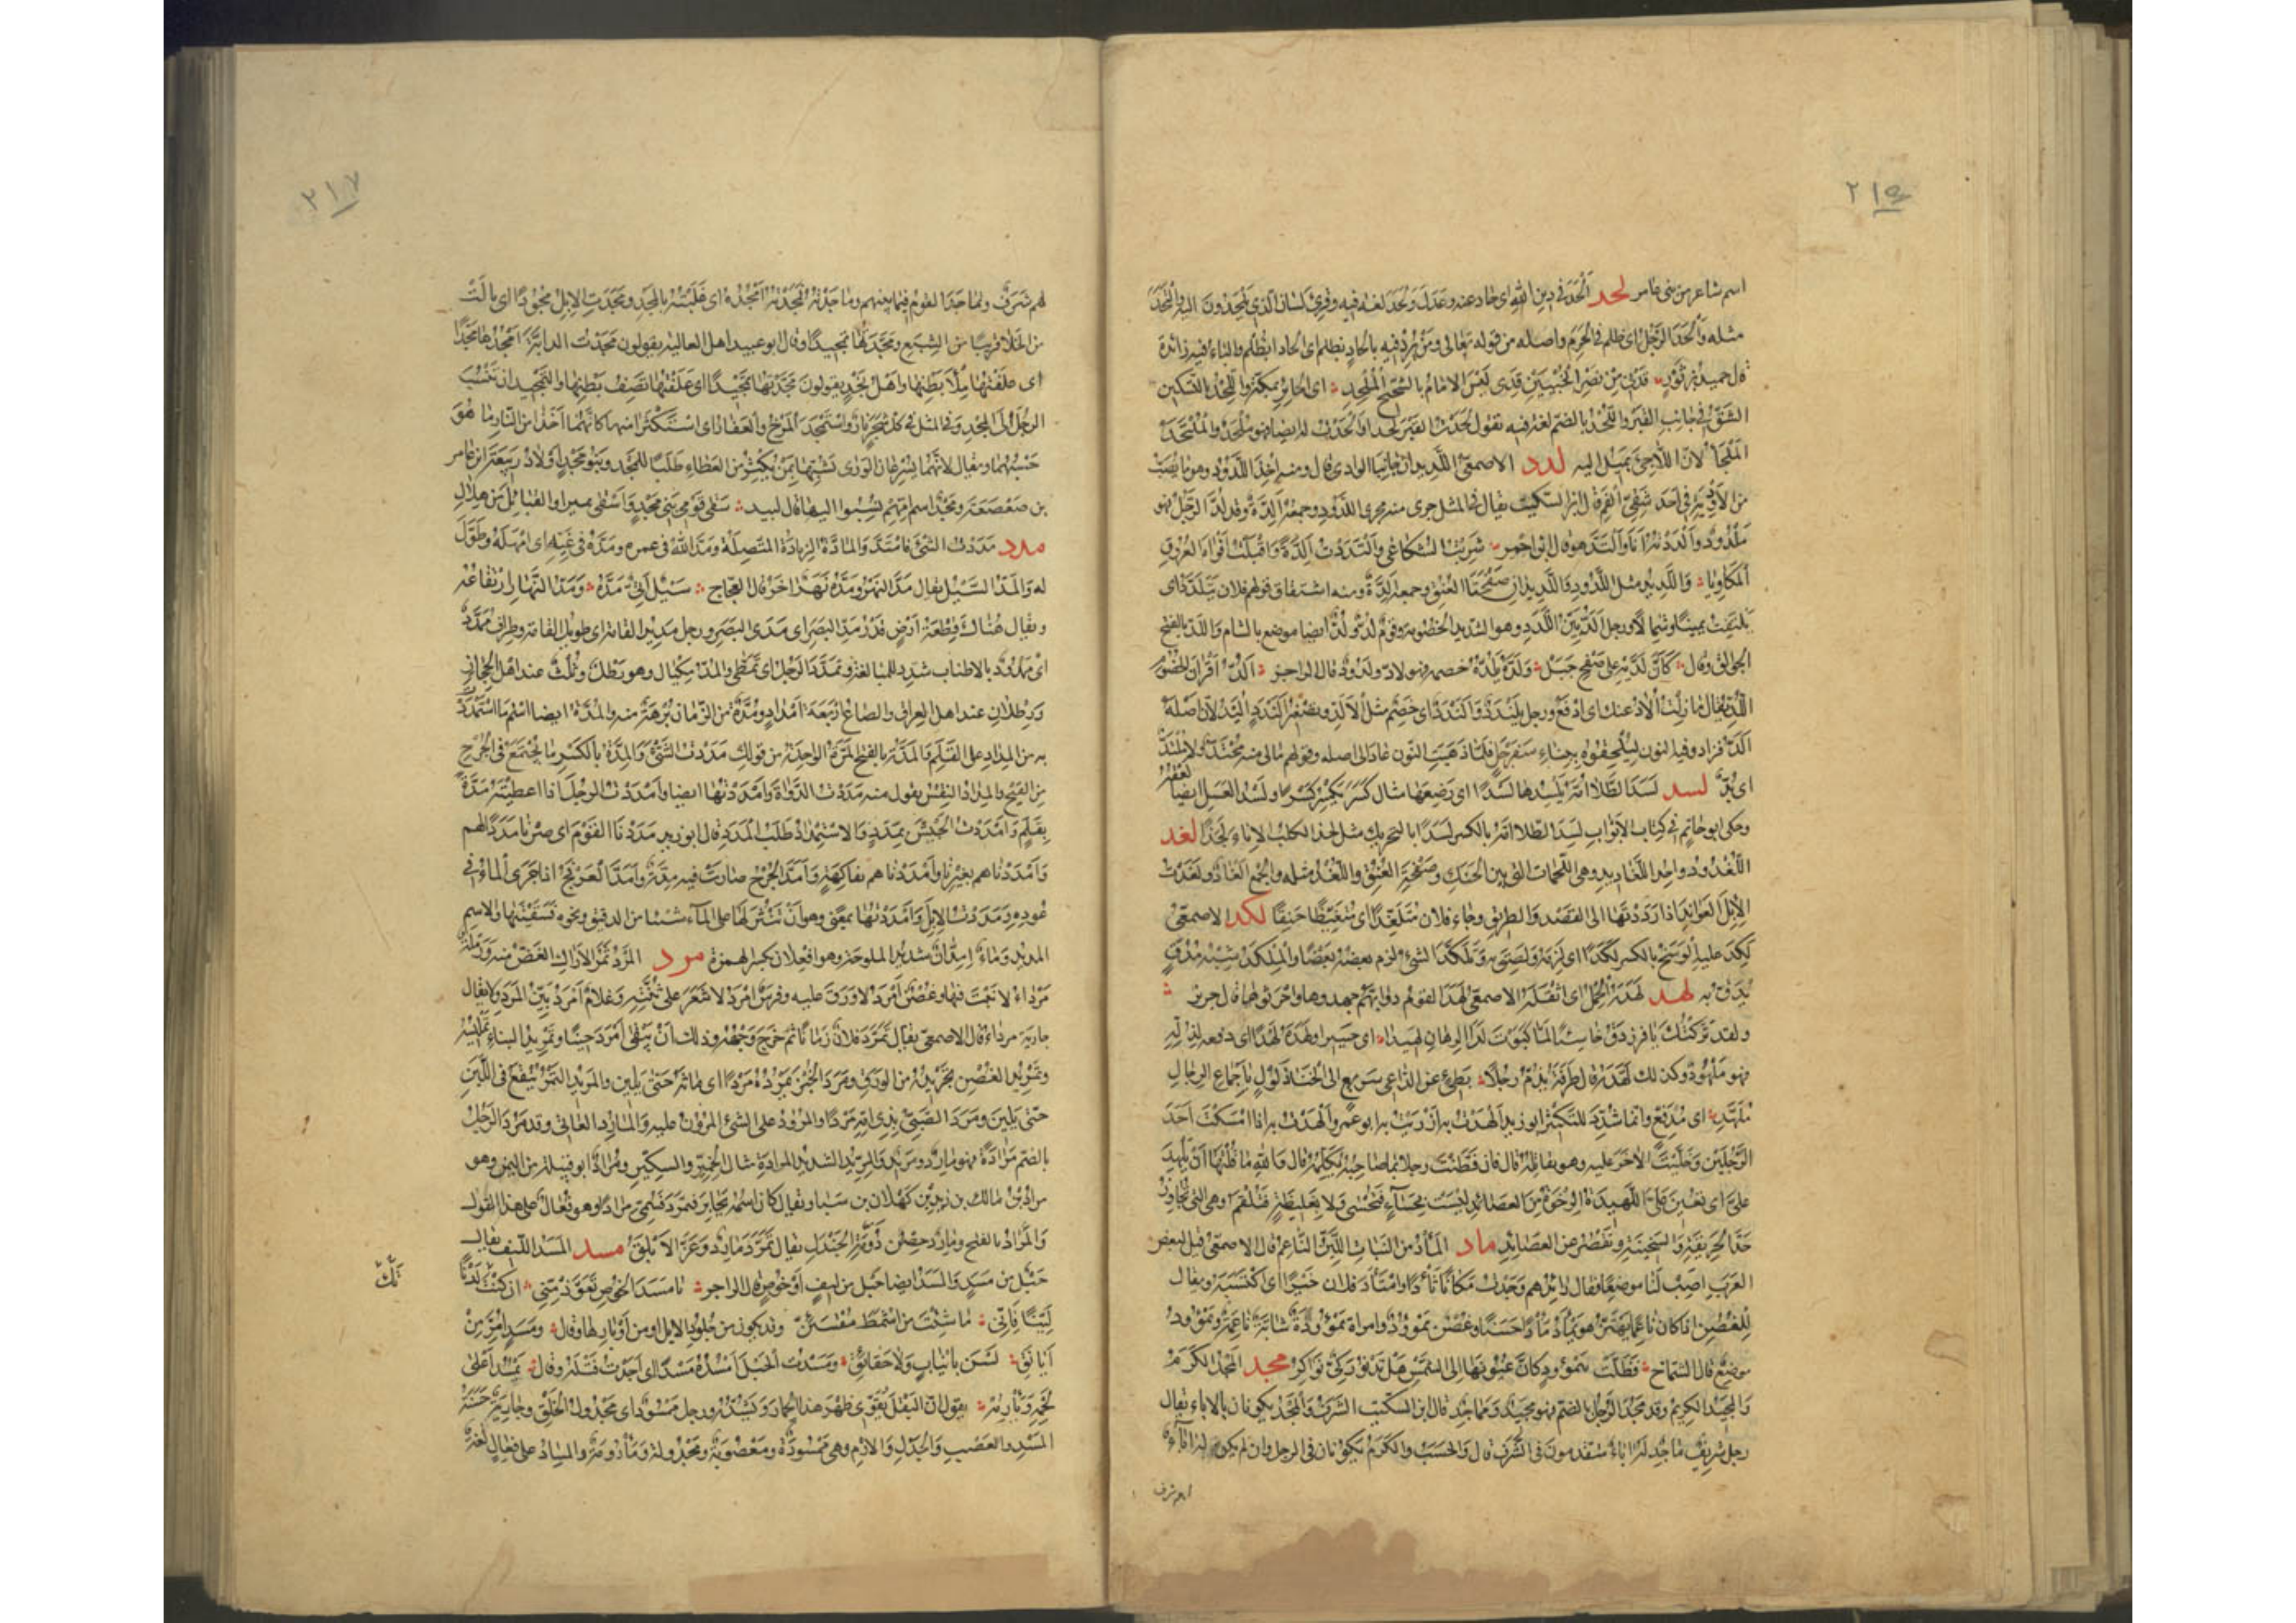 ٢١٥
اسم شاعر من بنى عامر لحد اَلْحَدَ فى دين الله اى حاد عنه وعدل ولحد لغة فيه وقرئ لسان الذى يلحدون اليه والتحد
مثله وَاَلْحَدَ الرّجل اى ظلم فى الحرم واصله من قوله تعالى ومن يُرِدْ فيه بالحادٍ بظلم اى الحادا بظلم والباء فيه زائدة
قال حميد بن ثور قدنى من نصر الخُبيبَين قدى ليس الامام بالشحيح الملحد اى الجائر بمكة واللحد بالتسكين
الشقّ فى جانب القبر واللُّحد بالضم لغة فيه تقول لحدت القبر لحدا والحدت له ايضا فهو ملحد والملتحد
الملجأ لانّ اللاجئ يميل اليه لدد الاصمعىّ اللديدان جانبا الوادى قال ومنه اخذ اللدود وهو ما يُصَبّ
من الادوية فى احد شِقَّىِ الفم قال ابن السكيت يقال فى المثل جرى منه مجرى اللدود وجمعه اَلِدّة وقد لُدَّ الرجل فهو
ملدود واَلْدَدْتُه انا والتدّ هو قال ابن احمر شربت الشكاعى والتددت الدّة واقبلت افواه العروق
المكاويا واللديد مثل اللدود واللديدان صفحتا العنق وجمعه اَلِدّة ومنه اشتقاق قولهم فلان يتلدّد اى
يلتفت يمينا وشمالا ورجل الدّ بيّن اللدد وهو الشديد الخصومة وقوم لُدّ ولُدّ ايضا موضع بالشام واللدّ بالفتح
الجوالق وقال كأنّ لدّيه على صفح جبل ولدّه يلدّه خصمه فهو لادّ ولدود قال الراجز الدّ اقران الخصوم
اللدّ يقال ما زلت الادّ عنك اى ادفع ورجل يلندد والندد اى خصم مثل الالدّ وتصغير الندد اليدّ لانّ اصله
الدّ فزاد فيه النون ليلحقوه ببناء سفرجل فلمّا ذهبت النون عاد الى اصله وقولهم مالى منه محتدّ ولا ملتدّ
اى بُدّ لسد لسد الطلا امّه يلسدها لسدا اى رضعها مثال كسر يكسر كسرا ولسد العسل ايضا لعقه
وحكى ابو حاتم فى كتاب الابواب لسد الطلا امّه بالكسر لسدا بالتحريك مثل لجذ الكلب الاناء لجذا لغد
اللغدود واحد اللغاديد وهى اللحمات التى بين الحنك وصفحة العنق واللغد مثله والجمع الغاد ولغدت
الابل العواند اذا رددتها الى القصد والطريق وجاء فلان متلغّدا اى متغيّظا حنقا لكد الاصمعىّ
لكد عليه الوسخ بالكسر لكدا اى لزمه ولصق به وتلكّد الشئ لزم بعضه بعضا والملكد شبه مدقّ
يدقّ به لهد لهده الحمل اى اثقله الاصمعىّ لهد القوم دوابّهم جهدوها واحرثوها قال جرير
ولقد تركتك يا فرزدق خاسئا لمّا كبوت لدى الرهان لهيدا اى حسيرا ولهده لهدا اى دفعه لذلّه
فهو ملهود وكذلك لهّده قال طرفة يذمّ رجلا بطئ عن الداعى سريع الى الخنا ذلول باجماع الرجال
ملهّد اى مدفّع وانما شدّد للتكثير ابو زيد الهدت به ازريت به ابو عمرو الهدت به اذا امسكت احد
الرجلين وخلّيت الآخر عليه وهو يقاتله قال فان فطّنت رجلا بما صاحبه يكلّمه قال والله ما قلتها الّا ان تُلهد
علىّ اى تعين علىّ اللهيدة الرخوة من العصائد ليست بحساء فتحسى ولا بغليظة فتلقم وهى التى تجاوز
حدّ الحريقة والسخينة وتقصر عن العصائد ماد المأد من النبات الليّن الناعم قال الاصمعى قيل لبعض
العرب اصب لنا موضعا فقال رائدهم وجدت مكانا ثأدا مأدا وامتأد فلان خيرا اى اكتسبه ويقال
للغصن اذا كان ناعما يهتزّ هو يمأد مأدا حسنا وغصن يمؤود وامراة يمؤودة شابّة ناعمة ويمؤود
موضع قال الشماخ فظلّت بيمؤود كأنّ عيونها الى الشمس هل تدنو ركىّ نواكز مجد المجد الكرم
والمجيد الكريم وقد مجد الرجل بالضم فهو مجيد وماجد قال ابن السكيت الشرف والمجد يكونان بالاباء يقال
رجل شريف ماجد له اباء متقدمون فى الشرف قال والحسب والكرم يكونان فى الرجل وان لم يكن له اباء
لهم شرف
٢١٧
لهم شرف وتماجد القوم فيما بينهم وماجدته فمجدته امجده اى غلبته بالمجد ومجدت الابل مجودا اى نالت
من الخلا قريبا من الشبع ومجّدتها تمجيدا وقال ابو عبيد اهل العالية يقولون مجدت الدابة امجدها مجدا
اى علفتها ملأ بطنها واهل نجد يقولون مجّدتها تمجيدا اى علفتها نصف بطنها والتمجيد ان تنسب
الرجل الى المجد وفى المثل فى كل شجر نار واستمجد المرخ والعفار اى استكثرا منها كانّهما اخذا من النار ما هو
حسبهما ويقال لانّهما يسرعان الورى شبّها بمن يكثر من العطاء طلبا للمجد وبنو مجد اولاد ربيعة ابن عامر
بن صعصعة ومجد اسم امّهم نسبوا اليها قال لبيد سقى قومى بنى مجد واسقى نميرا والقبائل من هلال
مدد مددت الشئ فامتدّ والمادّة الزيادة المتصلة ومدّ الله فى عمره ومدّه فى غيّه اى امهله وطوّل
له والمدّ السيل يقال مدّ النهر ومدّه نهر اخر قال العجاج سيل اتىّ مدّه ومدّ النهار ارتفاعه
ويقال هناك قطعة ارض قدر مدّ البصر اى مدى البصر ورجل مديد القامة اى طويل القامة وطراف ممدّد
اى ممدود بالاطناب شدّد للمبالغة وتمدّد الرجل اى تمطّى والمدّ مكيال وهو رطل وثلث عند اهل الحجاز
ورطلان عند اهل العراق والصاع اربعة امداد ومدّة من الزمان برهة منه والمدّة ايضا اسم ما استمددت
به من المداد على القلم والمدّة بالفتح المرّة الواحدة من قولك مددت الشئ والمدّة بالكسر ما يجتمع فى الجرح
من القيح والمداد النقس يقول منه مددت الدواة وامددتها ايضا وامددت الرجل اذا اعطيته مدّة
بقلم وامددت الجيش بمدد والاستمداد طلب المدد قال ابو زيد مددنا القوم اى صرنا مددا لهم
وامددناهم بغيرنا وامددناهم بفاكهة وامدّ الجرح صارت فيه مدّة وامدّ العرفج اذا جرى الماء فى
عوده ومددت الابل وامددتها بمعنى وهو ان تنثر لها على الماء شيئا من الدقيق ونحوه فتسقيها والاسم
المديد وماء امدّان شديد الملوحة وهو افعلان بكسر الهمزة مرد المرد ثمر الاراك الغضّ منه ورملة
مرداء لا نبت فيها وغصن امرد لا ورق عليه وفرس امرد لا شعر على ثنّته وغلام امرد بيّن المرد ولا يقال
جارية مرداء قال الاصمعى يقال تمرّد فلان زمانا ثم خرج وجهه وذلك ان يبقى امرد حينا وتمريد البناء تمليسه
وتمريد الغصن تجريده من الورق ومرد الخبز يمرده مردا اى ماثه حتى يلين والمريد التمر ينقع فى اللبن
حتى يلين ومرد الصبىّ ثدى امّه مردا والمرود على الشئ المرون عليه والمارد العاتى وقد مرد الرجل
بالضم مرادة فهو مارد ومريد والمرّيد الشديد المرادة مثال الخمّير والسكّير ومراد ابو قبيلة من اليمن وهو
مراد بن مالك بن زيد بن كهلان بن سبا ويقال كان اسمه يحابر فتمرّد فسمّى مرادا وهو فعال على هذا القول
والمراد بالفتح ومارد حصن دومة الجندل يقال تمرّد مارد وعزّ الابلق مسد المسد الليف يقال
حبل من مسد والمسد ايضا حبل من ليف او خوص قال الراجز يا مسد الخوص تعوّذ منّى ان كنت لدنا
ليّنا فانّى ما شئت من اشمط مقسئنّ وقد يكون من جلود الابل او من اوبارها وقال ومسد امرّ من
ايانق لسن بانياب ولا حقائق ومسدت الحبل امسده مسدا اى اجدت فتله وقال يمسد اعلى
لحمه ويأرمه يقول انّ البقل يقوّى ظهر هذا الحمار ويشدّه ورجل ممسود اى مجدول الخلق وجارية حسنة
المسد والعصب والجدل والارم وهى ممسودة ومعصوبة ومجدولة ومأرومة والمساد على فعال لغة